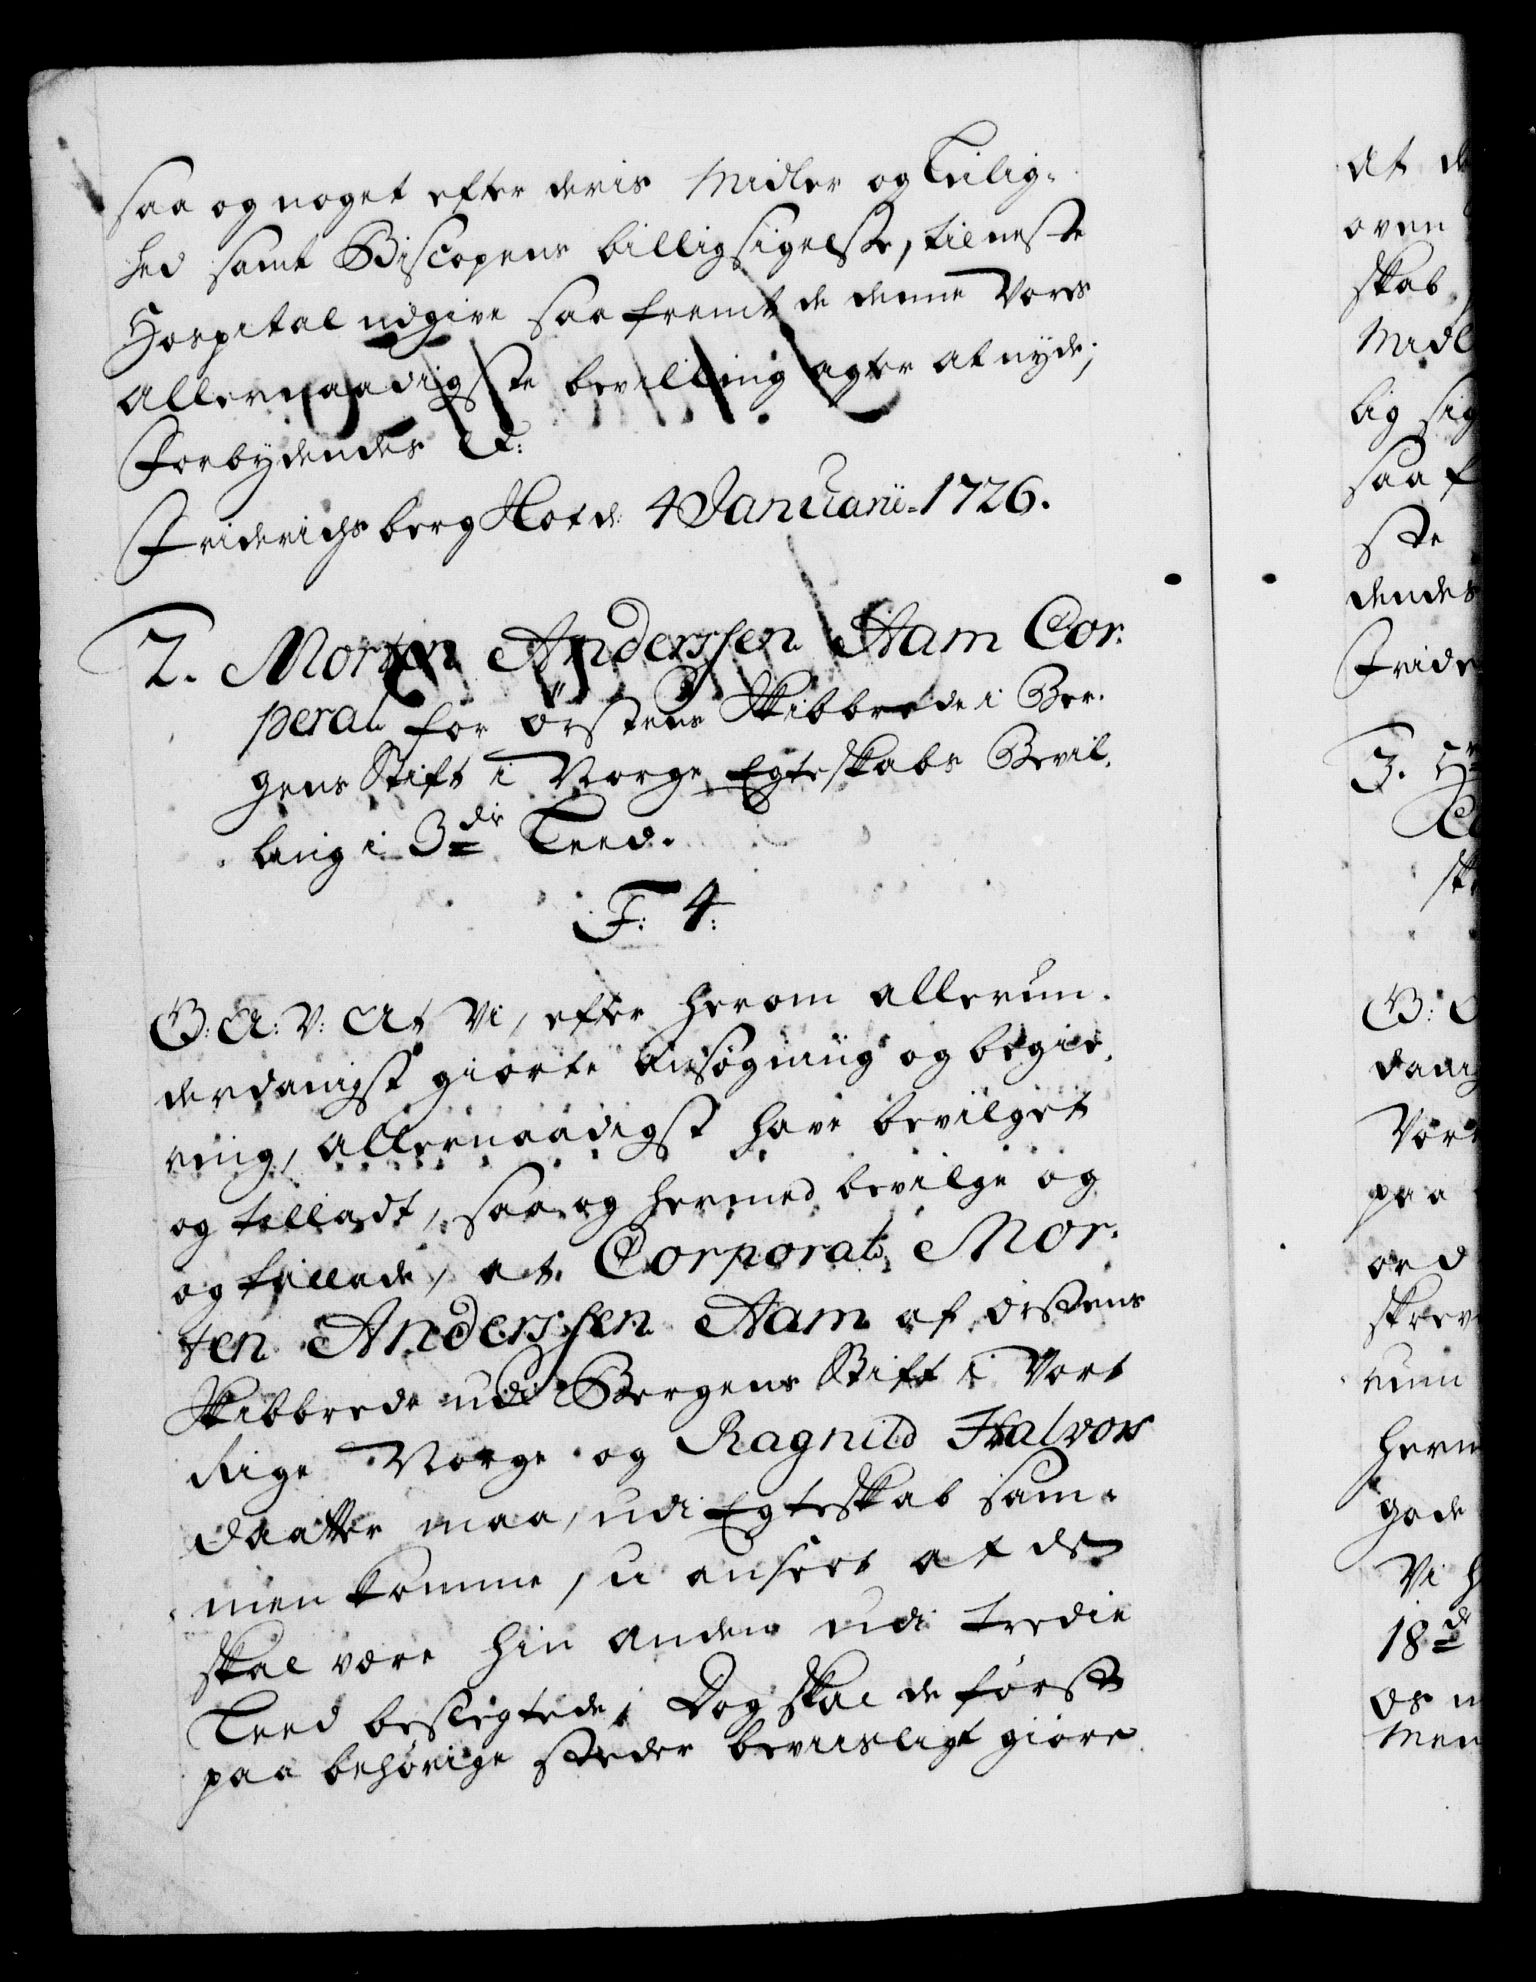 saa og noget efter deris Midler og Leilig-
hed samt Biscopens billigsigelse, til neste
Hospital udgive saa fremt de denne Vores
allernaadigste bevilling agter at nyde;
Forbydendes etc:
Friderichsberg Slot d: 4 Januarii 1726.
2. Morten Anderssen Aam Cor-
peral for Ørstens Skibbrede i Ber-
gens Stift i Norge Egteskabs Bevil-
ling i 3die Leed.
F: 4:
G: A: V: At Vi, efter herom allerun-
derdanigst giorte ansøgning og begie-
ring, allernaadigst have bevilget
og tilladt, saa og hermed bevilge og
og tillade, at Corporal Mor-
ten Anderssen Aam af Ørstens
Skibbrede udi Bergens Stift i Vort
Rige Norge og Ragnild Halvors
daatter maa, udi Egteskab sam-
men komme, u anseet at de
skal være hin anden udi tredie
Leed beslegtede; Dog skal de først
paa behørige steder beviisligt giøre
at de
oven
skab
Midl
lig sig
saa f
ste
dendes
Fride
3.
G:
danig
Vor
paa
ord
skrev
herm
gode
Vi h
18de
os
Men